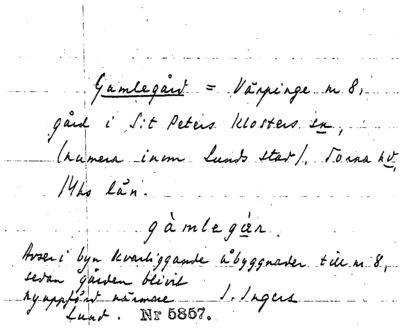 Gamlegård = Värpinge n 8,
gård i S:t Peters Klosters sn,
(numera inom Lunds stad), Torna hd,
Mhs län.
gàmlegår.
Avser i byn kvarliggande åbyggnader till n 8,
sedan gården blivit
nyuppförd närmare I. Ingers
Lund. Nr 5857.